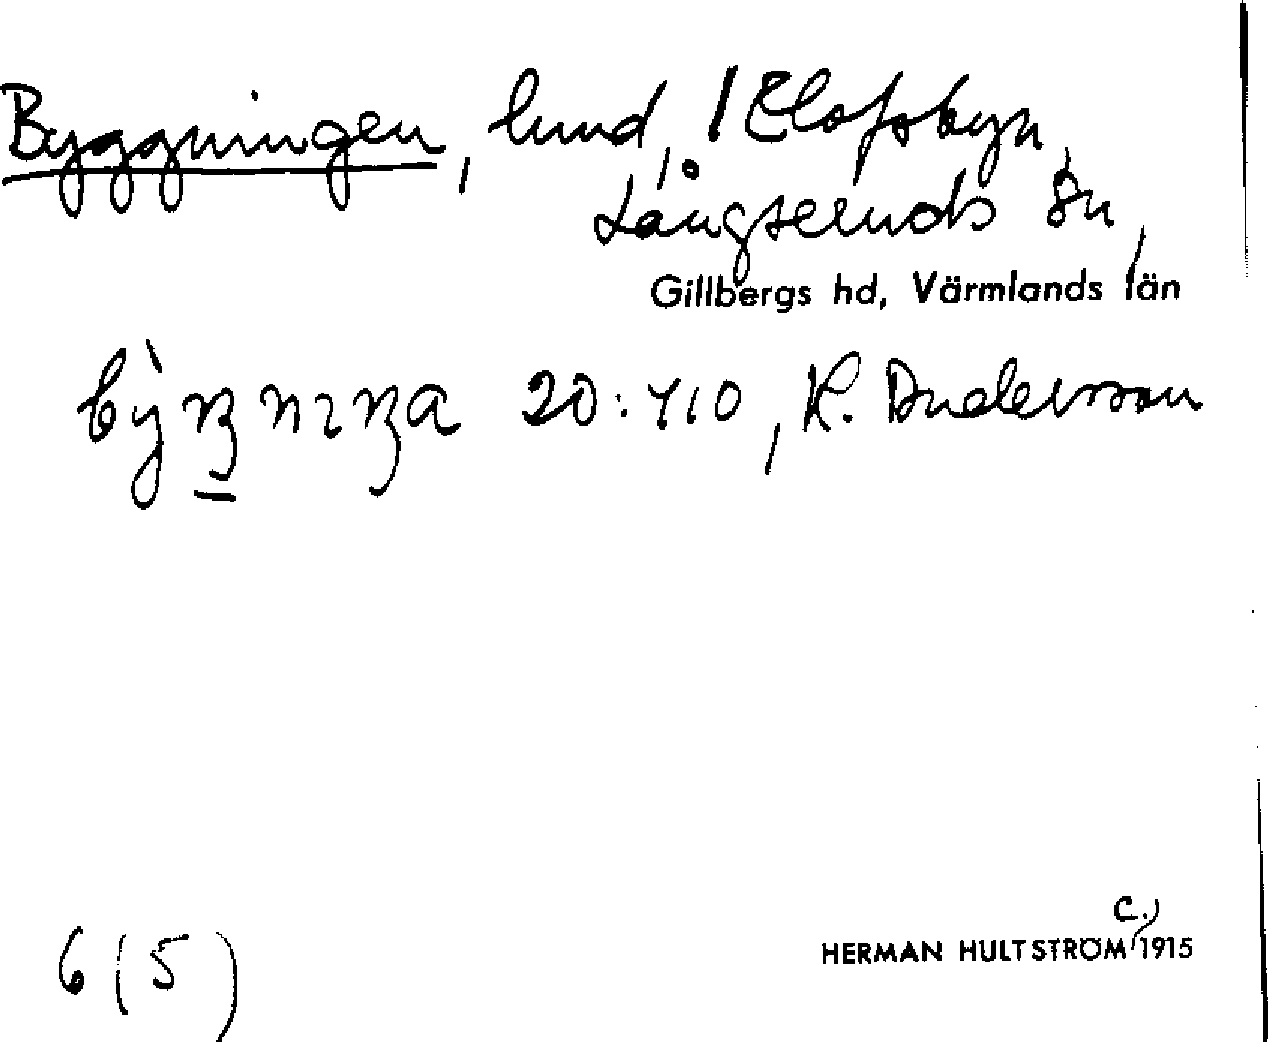 Byggningen, lund, / Elofsbyn,
Långseruds sn,
Gillbergs hd, Värmlands län
20:410, K. Andersson
6 (5)
c.
HERMAN HULTSTRÖM 1915